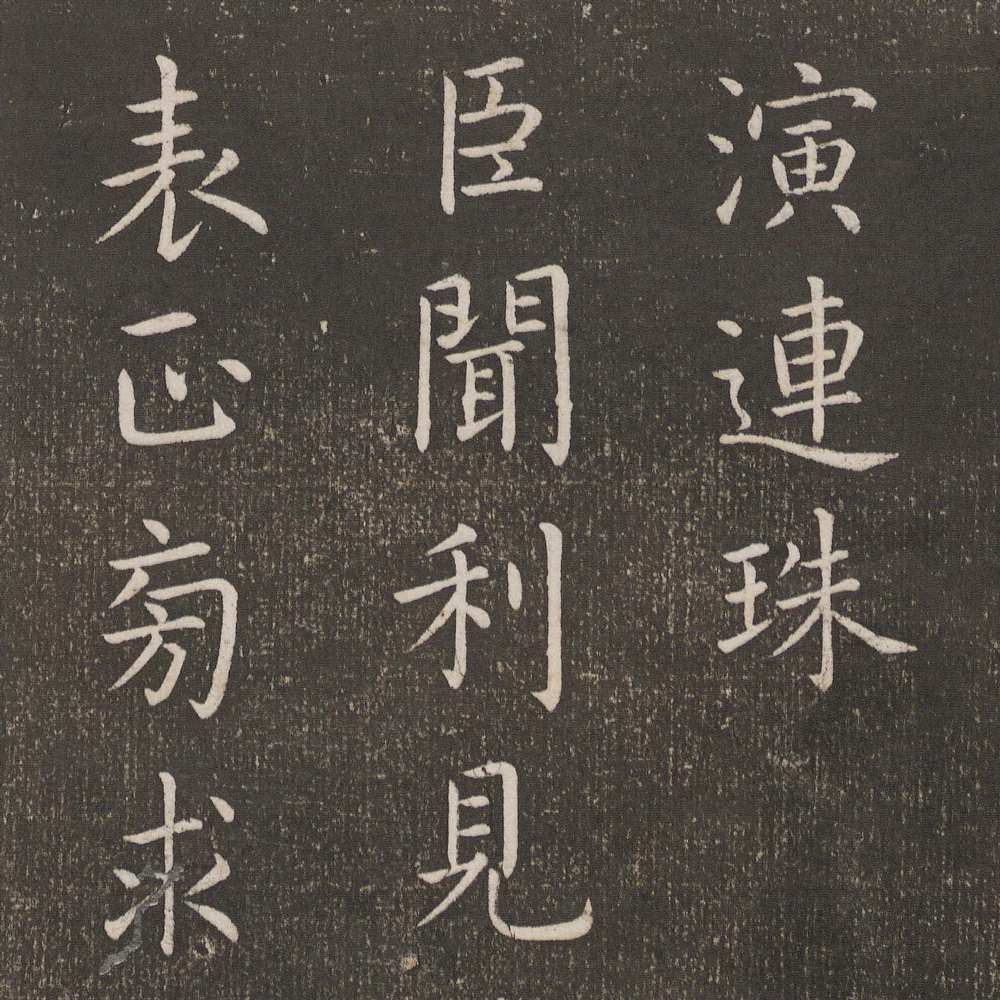 演連珠
臣聞利見
表正旁求